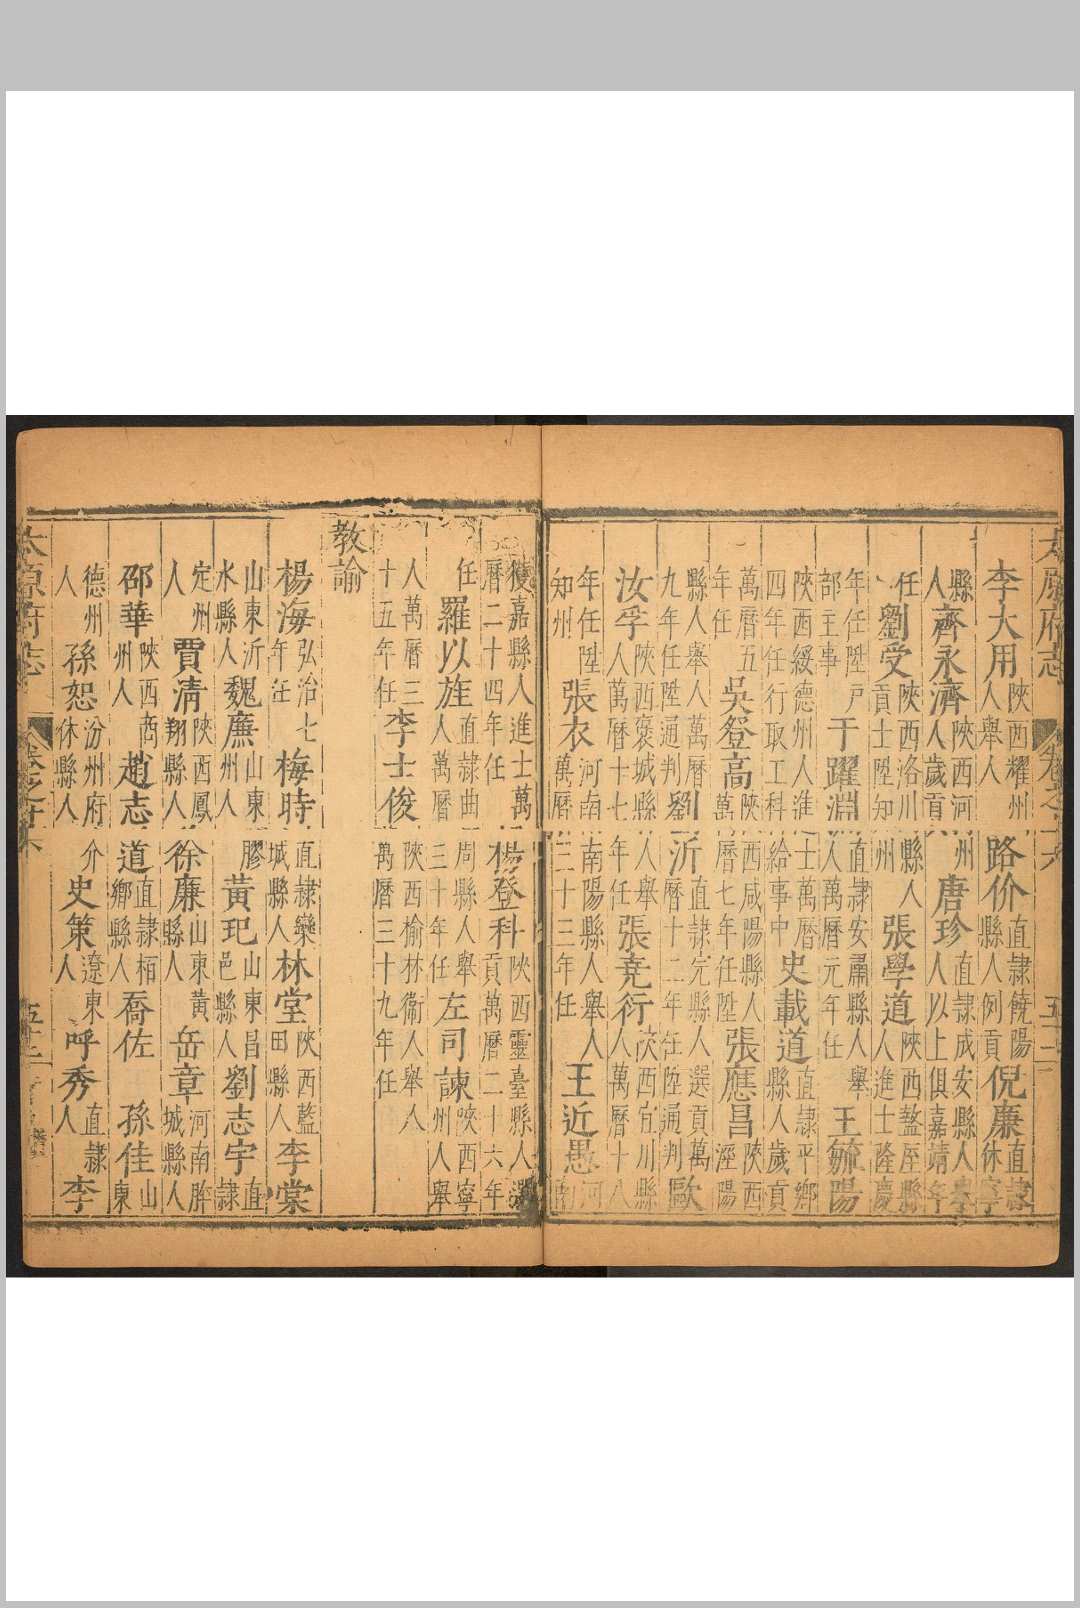 太原府志 卷之十六 五十二
李大用陝西耀州人舉人 路价直隸饒陽縣人例貢 倪廉直隸休寧
縣人 齊永濟陝西河州人歲貢 唐珍直隸成安縣人以上俱嘉靖年
任 劉受陝西洛川縣人貢士陞知州 張學道陝西盩厔縣人進士隆慶
年任陞戶部主事 于躍淵直隸安肅縣人舉人萬曆元年任 王毓陽
陝西綏德州人進士萬曆四年任行取工科給事中 史載道直隸平鄉縣人歲貢
萬曆五年任 吳登高陝西咸陽縣人萬曆七年任陞 張應昌陝西涇陽
縣人舉人萬曆九年任陞通判 劉沂直隸完縣人選貢萬曆十二年任陞通判 歐
汝孚陝西褒城縣人舉人萬曆十七年任 張堯行陝西宜川縣人萬曆十八
年任陞知州 張衣河南南陽縣人舉人萬曆二十三年任 王近愚河南
獲嘉縣人進士萬曆二十四年任 楊登科陝西靈臺縣人選貢萬曆二十六年
任 羅以旌直隸曲周縣人舉人萬曆三十年任 左司諫陝西寧州人舉
人萬曆三十五年任 李士俊陝西榆林衛人舉人萬曆三十九年任
教諭
楊海弘治七年任 梅時直隸欒城縣人 林堂陝西藍田縣人 李棠
山東沂水縣人 魏廉山東膠州人 黃玘山東昌邑縣人 劉志宇直隸
定州人 賈清陝西鳳翔縣人 徐廉山東黃縣人 岳章河南胙城縣人
邵華陝西商州人 趙志道直隸栢鄉縣人 喬佐 孫佳山東
德州人 孫恕汾州府介休縣人 史策遼東人 呼秀直隸人 李
太原府志 卷之十六 五十三